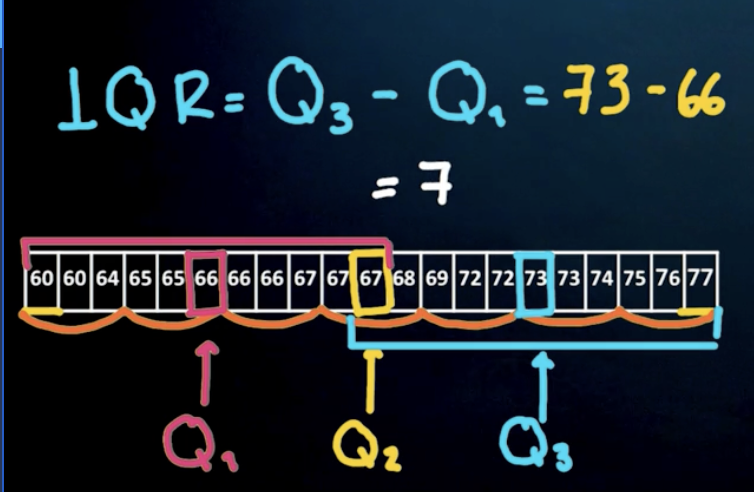 IQR = Q₃ - Q₁ = 73 - 66
= 7
60 60 64 65 65 66 66 66 67 67 67 68 69 72 72 73 73 74 75 76 77
Q₁ Q₂ Q₃